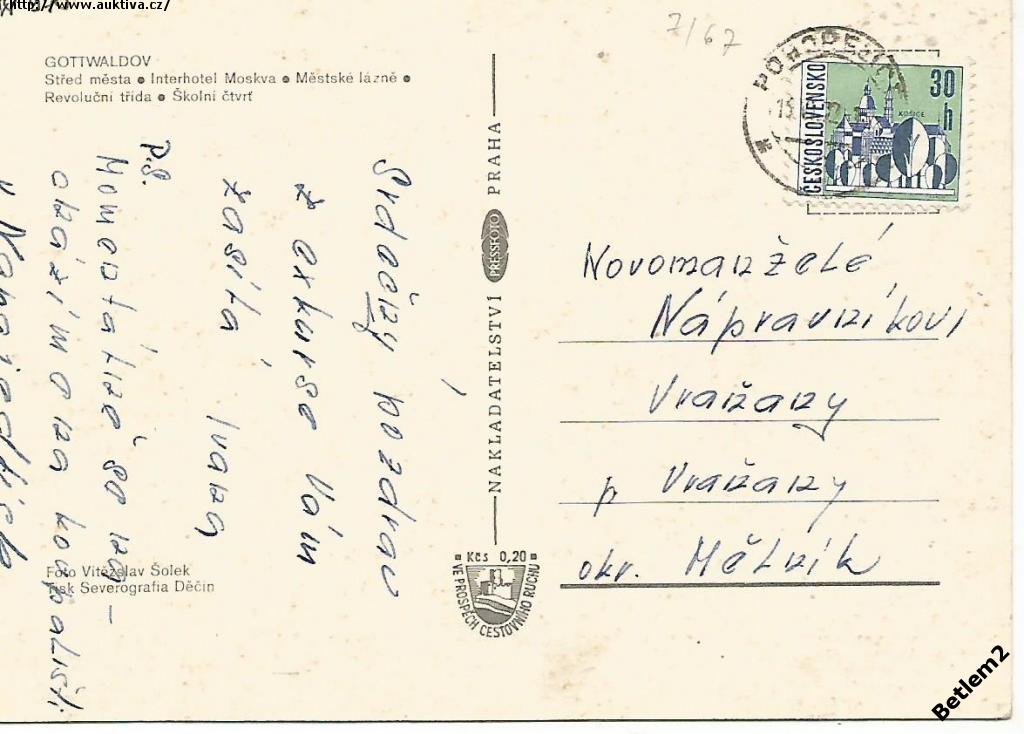 http://www.auktiva.cz/
GOTTWALDOV
Střed města ● Interhotel Moskva ● Městské lázně ●
Revoluční třída ● Školní čtvrť
7/67
POHOŘELICE
ČESKOSLOVENSKO
30 h
KOŠICE
Srdečný pozdrav
z exkurse Vám
zasílá Ivana
P.S.
Momentálně se na-
cházíme na koupališti
v Napajedlích
NAKLADATELSTVÍ PRESSFOTO PRAHA
Kčs 0,20
VE PROSPĚCH CESTOVNÍHO RUCHU
Novomanželé
Nápravníkovi
Vraňany
p Vraňany
okr. Mělník
Foto Vítězslav Šolek
Tisk Severografia Děčín
Betlem2